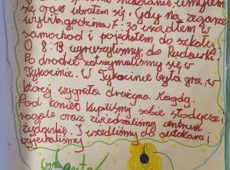 się oraz ubrałem się. Gdy na zegarze
wybiła godzina 7:30 wsiadłem w
samochód i pojechałem do szkoły
O 8:13 wyruszyliśmy do
Po drodze zatrzymaliśmy się w
Tykocinie. W Tykocinie była gra, w
której wygrała drużyna Magdy.
Pod koniec kupiliśmy sobie słodycze,
oraz zwiedzaliśmy centrum
żydowskie. I wsiedliśmy do autokaru i